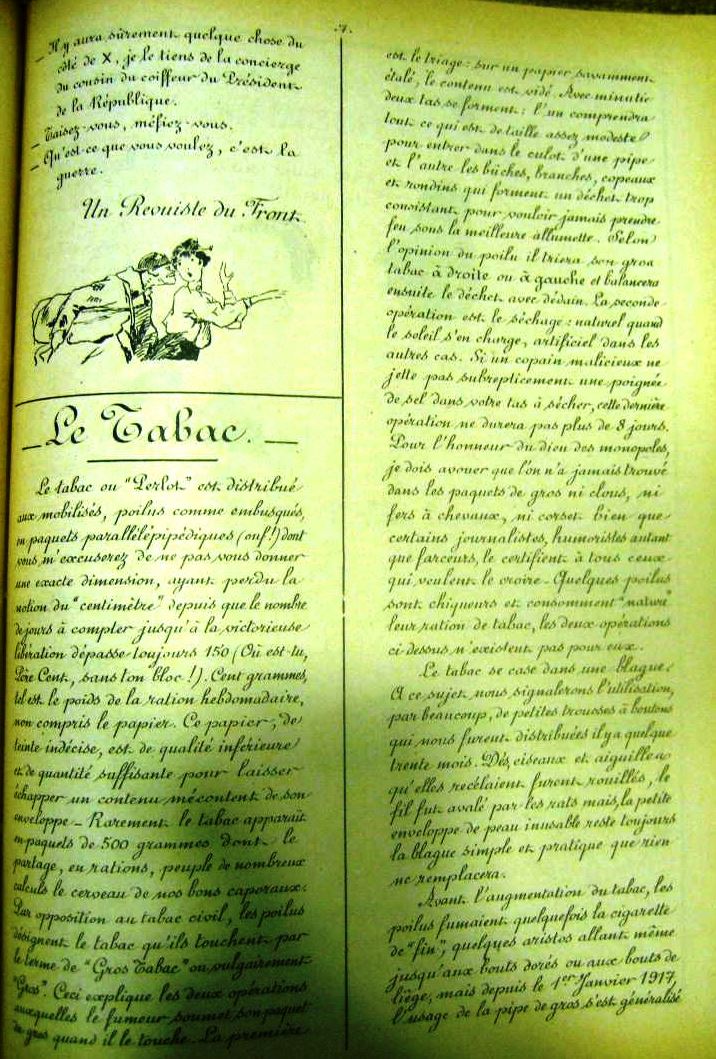 .7.
— Il y aura sûrement quelque chose du
côté de X, je le tiens de la concierge
du cousin du coiffeur du Président
de la République.
— Taisez-vous, méfiez-vous.
— Qu'est-ce que vous voulez, c'est la
guerre.
Un Revuiste du Front.
— Le Tabac. —
Le tabac ou "Perlot" est distribué
aux mobilisés, poilus comme embusqués,
en paquets parallélépipédiques (ouf!) dont
vous m'excuserez de ne pas vous donner
une exacte dimension, ayant perdu la
notion du "centimètre" depuis que le nombre
de jours à compter jusqu'à la victorieuse
libération dépasse toujours 150 (Où est-tu,
Père Cent, sans ton bloc!). Cent grammes,
tel est le poids de la ration hebdomadaire,
non compris le papier. Ce papier, de
teinte indécise, est de qualité inférieure
et de quantité suffisante pour laisser
échapper un contenu mécontent de son
enveloppe - Rarement le tabac apparaît
en paquets de 500 grammes dont le
partage, en rations, peuple de nombreux
calculs le cerveau de nos bons caporaux.
Par opposition au tabac civil, les poilus
désignent le tabac qu'ils touchent par
le terme de "Gros Tabac" ou vulgairement
"Gros". Ceci explique les deux opérations
auxquelles le fumeur soumet son paquet
de gros quand il le touche. La première
est le triage: sur un papier savamment
étalé, le contenu est vidé. Avec minutie
deux tas se forment: l'un comprendra
tout ce qui est de taille assez modeste
pour entrer dans le culot d'une pipe
et l'autre les bûches, branches, copeaux
et rondins qui forment un déchet trop
consistant pour vouloir jamais prendre
feu sous la meilleure allumette. Selon
l'opinion du poilu il triera son gros
tabac à droite ou à gauche et balancera
ensuite le déchet avec dédain. La seconde
opération est le séchage: naturel quand
le soleil s'en charge, artificiel dans les
autres cas. Si un copain malicieux ne
jette pas subrepticement une poignée
de sel dans votre tas à sécher, cette dernière
opération ne durera pas plus de 8 jours.
Pour l'honneur du dieu des monopoles,
je dois avouer que l'on n'a jamais trouvé
dans les paquets de gros ni clous, ni
fers à chevaux, ni corset bien que
certains journalistes, humoristes autant
que farceurs, le certifient à tous ceux
qui veulent le croire - Quelques poilus
sont chiqueurs et consomment "nature"
leur ration de tabac, les deux opérations
ci-dessus n'existent pas pour eux.
Le tabac se case dans une blague.
A ce sujet nous signalerons l'utilisation,
par beaucoup, de petites trousses à boutons
qui nous furent distribuées il y a quelque
trente mois. Dés, ciseaux et aiguilles
qu'elles recélaient furent rouillés, le
fil fut avalé par les rats mais, la petite
enveloppe de peau inusable reste toujours
la blague simple et pratique que rien
ne remplacera.
Avant l'augmentation du tabac, les
poilus fumaient quelquefois la cigarette
de "fin", quelques aristos allant même
jusqu'aux bouts dorés ou aux bouts de
liège, mais depuis le 1er Janvier 1917,
l'usage de la pipe de gros s'est généralisé